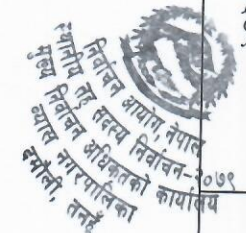 निर्वाचन आयोग, नेपाल
स्थानीय तह सदस्य निर्वाचन-२०७९
मुख्य निर्वाचन अधिकृतको कार्यालय
व्यास नगरपालिका
दमौली, तनहुँ